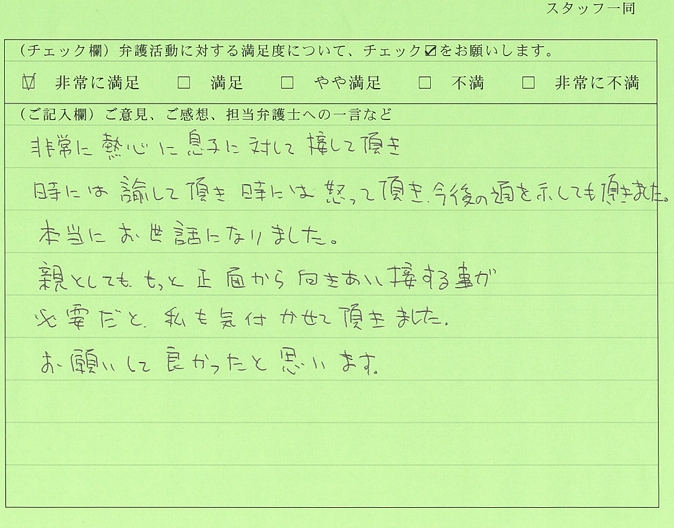 スタッフ一同
（チェック欄）弁護活動に対する満足度について、チェック☑をお願いします。
☑ 非常に満足 □ 満足 □ やや満足 □ 不満 □ 非常に不満
（ご記入欄）ご意見、ご感想、担当弁護士への一言など
非常に熱心に息子に対して接して頂き
時には諭して頂き時には怒って頂き、今後の道を示しても頂きました。
本当にお世話になりました。
親としても、もっと正面から向きあい接する事が
必要だと、私も気付かせて頂きました。
お願いして良かったと思います。